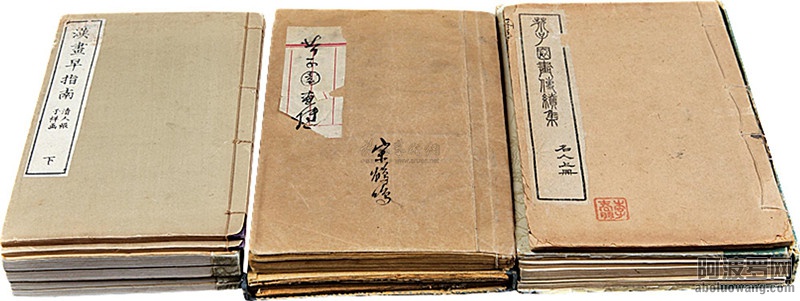 漢畫早指南
清人 
下
芥子園畫傳
宋鶴鳴
芥子園畫傳續集
名人上冊
阿波罗网
aboluowang.com